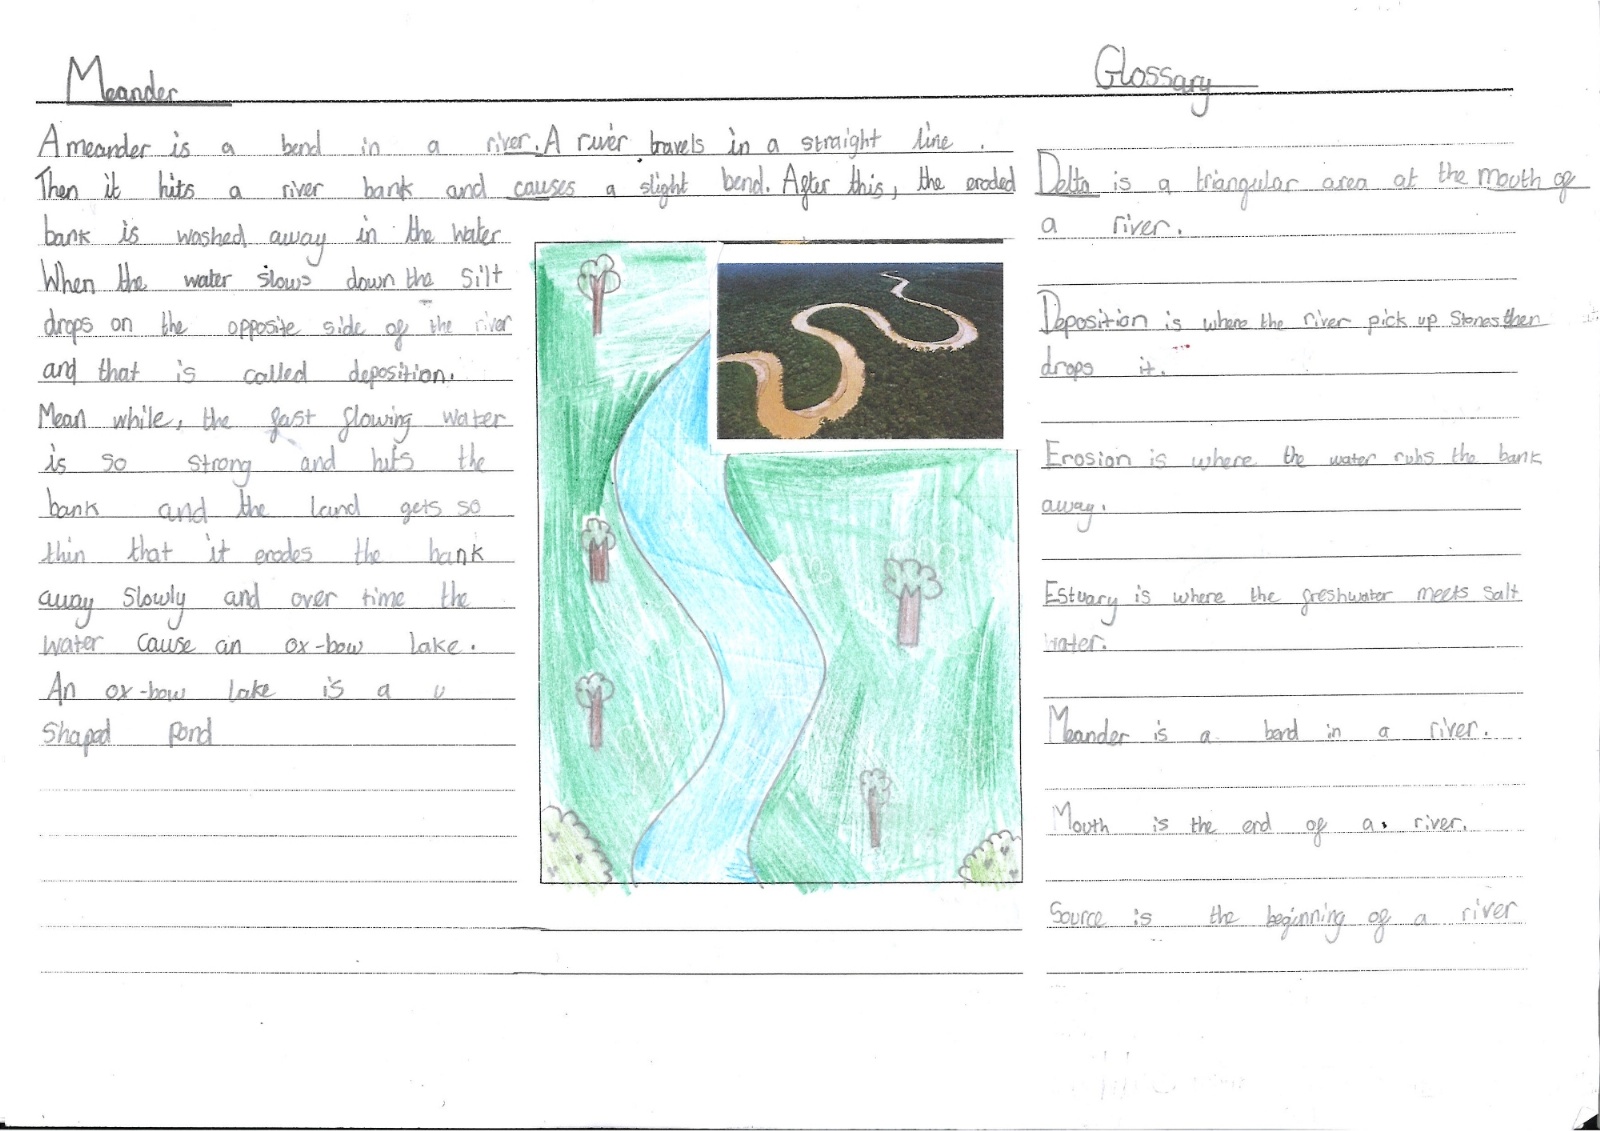 Meander
A meander is a bend in a river. A river travels in a straight line.
Then it hits a river bank and causes a slight bend. After this, the eroded
bank is washed away in the water
When the water slows down the silt
drops on the opposite side of the river
and that is called deposition.
Mean while, the fast flowing water
is so strong and hits the
bank and the land gets so
thin that it erodes the bank
away slowly and over time the
water cause an ox-bow lake.
An ox-bow lake is a u
shaped pond
Glossary
Delta is a triangular area at the mouth of
a river.
Deposition is where the river pick up stones then
drops it.
Erosion is where the water rubs the bank
away.
Estuary is where the freshwater meets salt
water.
Meander is a bend in a river.
Mouth is the end of a river.
Source is the beginning of a river